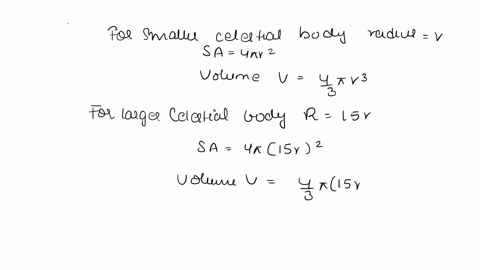 For smaller celestial body radius = r
SA = 4πr²
Volume V = 4/3 πr³
For larger celestial body R = 15r
SA = 4π(15r)²
Volume V = 4/3 π(15r